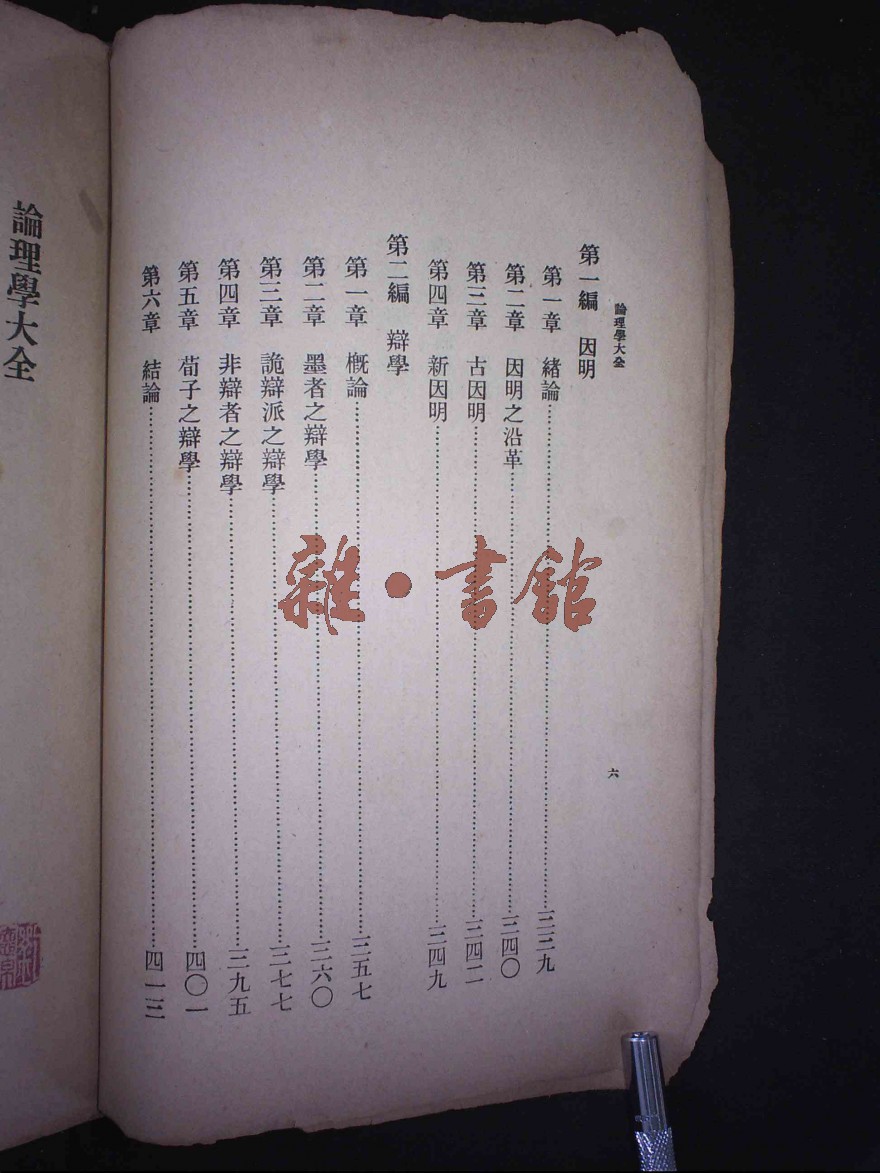 論理學大全
六
第一編　因明
第一章　緒論……三二九
第二章　因明之沿革……三四〇
第三章　古因明……三四二
第四章　新因明……三四九
第二編　辯學
第一章　槪論……三五七
第二章　墨者之辯學……三六〇
第三章　詭辯派之辯學……三七七
第四章　非辯者之辯學……三九五
第五章　荀子之辯學……四〇一
第六章　結論……四一三
論理學大全
雜·書館